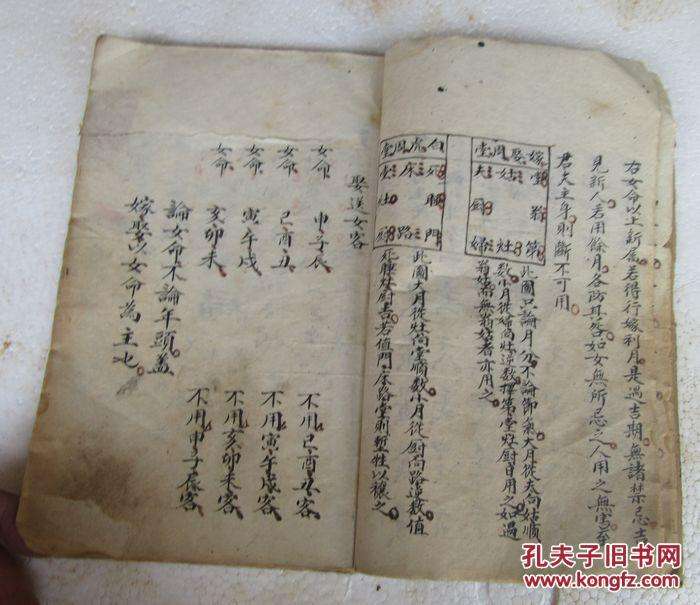 右女命以上新为若得行嫁利月是過吉期無諸禁忌吉
見新人若用餘月各防耳然如女無所忌之人用之無害至
君夫主年則斷不可用
嫁娶周堂
堂 翁 第
姑 灶
夫 厨 婦
此圖只論月分不論節氣大月從夫向姑順
数小月從婦向灶逆数擇第堂灶厨日用之如遇
翁姑而無翁姑者亦用之
白虎周堂
死 睡 門
床 路
堂 灶 厨
此圖大月從灶向堂順数小月從厨向路逆数值
死睡灶厨吉若值門床路堂則塹牲以禳之
娶送女客
女命 申子辰 不用巳酉丑客
女命 巳酉丑 不用寅午戌客
女命 寅午戌 不用亥卯未客
女命 亥卯未 不用申子辰客
論女命不論年頭盖
嫁娶以女命為主也
孔夫子旧书网
www.kongfz.com